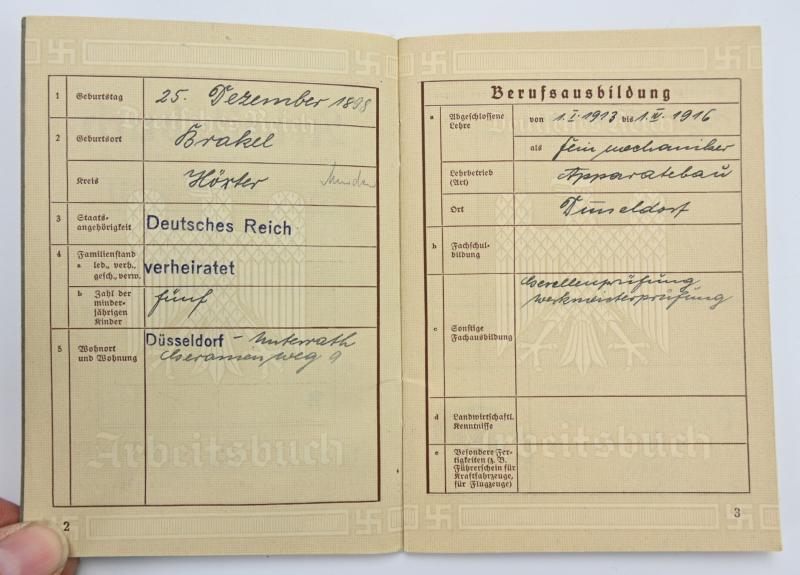 1 Geburtstag 25. Dezember 1898
2 Geburtsort Brakel
Kreis Höxter
3 Staats-
angehörigkeit Deutsches Reich
4 Familienstand
a led., verh.,
gesch., verw. verheiratet
b Zahl der
minder-
jährigen
Kinder fünf
5 Wohnort
und Wohnung Düsseldorf - Unterrath
weg 9
Arbeitsbuch
2
Berufsausbildung
a Abgeschlossene
Lehre von 1.I.1913 bis 1.IV.1916
als Feinmechaniker
Lehrbetrieb
(Art) Apparatebau
Ort Düsseldorf
b Fachschul-
bildung
c Sonstige
Fachausbildung Gesellenprüfung
Werkmeisterprüfung
d Landwirtschaftl.
Kenntnisse
e Besondere Fer-
tigkeiten (z. B.
Führerschein für
Kraftfahrzeuge,
für Flugzeuge)
Arbeitsbuch
3